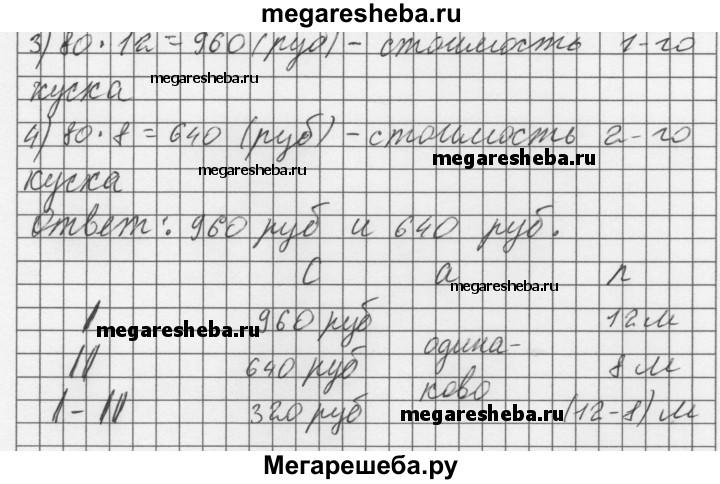 megaresheba.ru
3) 80 · 12 = 960 (руб) - стоимость 1-го
куска
megaresheba.ru
4) 80 · 8 = 640 (руб) - стоимость 2-го
megaresheba.ru
megaresheba.ru
куска
Ответ: 960 руб и 640 руб.
C a n
megaresheba.ru
I 960 руб 12 м
megaresheba.ru
II 640 руб одина- 8 м
ково
I - II 320 руб (12-8) м
megaresheba.ru
Мегарешеба.ру